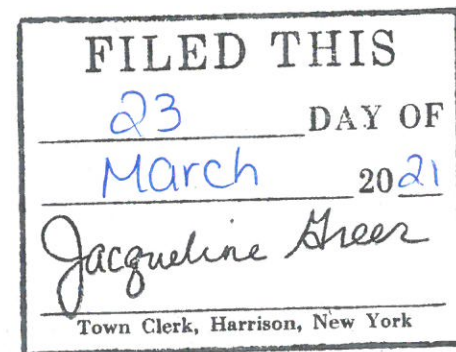 FILED THIS
23 DAY OF
March 2021
Jacqueline Greer
Town Clerk, Harrison, New York